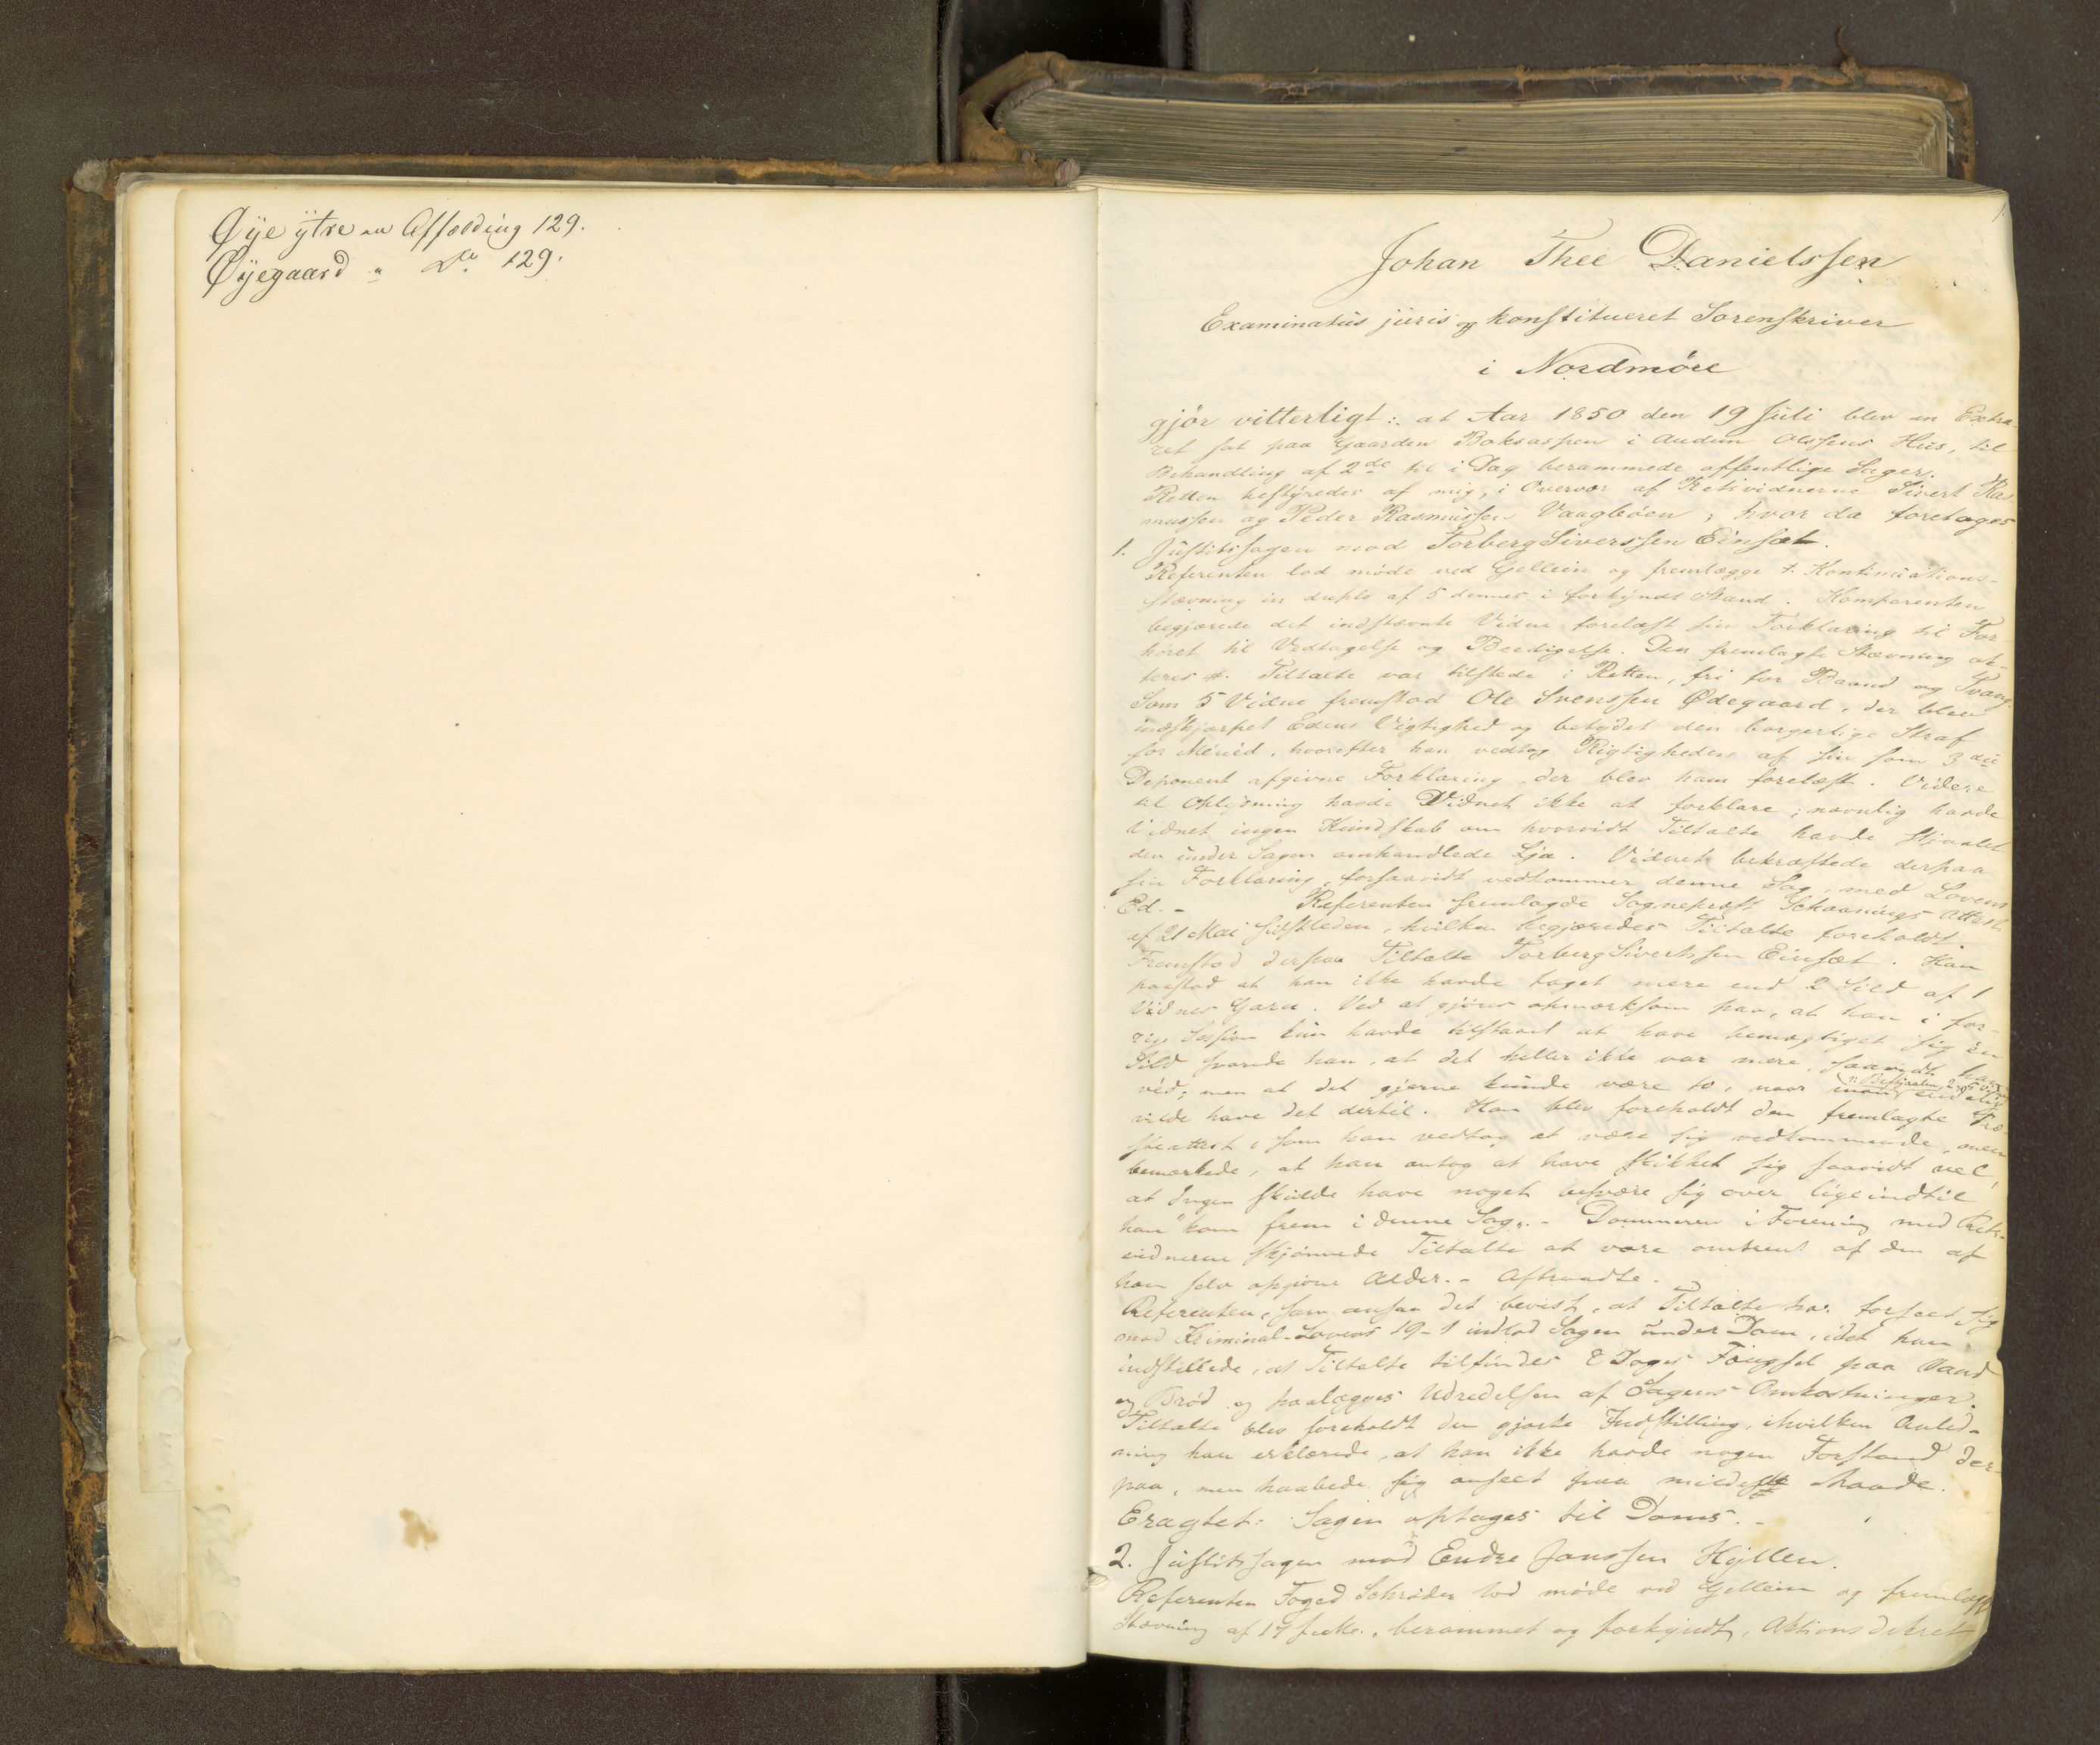 Øÿe ÿtre Affælding 129.
Øÿegaard " Do 129.
1.
Johan Thee Danielssen
Examinatus juris og konstitueret Sorenskriver
i Nordmöre
gjör vitterligt: at Aar 1850 den 19 Juli blev en Extra-
ret sat paa Gaarden Boksaspen i Audun Olssens Hus, til
Behandling af 2de til i Dag berammede offentlige Sager.
Retten bestyredes af mig, i Overvær af Retsvidnerne Sivert Ras
mussen og Peder Rasmussen Vaagböen, hvor da foretages
1. Justitssagen mod Torberg Siverssen Einset.
Referenten lod möde ved Gellein og fremlægge t. Kontinuations-
stævning in duplo af 5 dennes i forkyndt Stand. Komparenten
begjærede det indstævnte Vidne forelæst sin Forklaring til For-
höret til Vedtagelse og Beedigelse. Den fremlagte Stævning ak-
teres t. Tiltalte var tilstede i Retten, fri for Baand og Tvang.
Som 5 Vidne fremstod Ole Svenssen Ødegaard, der blev
indskjærpet Edens Vigtighed og betydet den borgerlige Straf
for Meneed, hvorefter han vedtog Rigtigheden af sin som 3die
Deponent afgivne Forklaring, der blev ham forelæst. Videre
til Oplysning havde Vidnet ikke at forklare; navnlig havde
Vidnet ingen Kundskab om hvorvidt Tiltalte havde stjaalet
den under Sagen omhandlede Lja. Vidnet bekræftede derpaa
sin Forklaring, forsaavidt vedkommer denne Sag, med Lovens
Ed. - Referenten fremlagde Sognepræst Schaanings Attest
af 21 Mai sidstleden, hvilken begjæredes Tiltalte foreholdt.
Fremstod derpaa Tiltalte Torberg Sivertssen Einset. Han
paastod at han ikke havde taget mere end 2 Sild af 1
Vidnes Garn. Ved at gjöres opmærksom paa, at han i for-
rige Session kun havde tilstaaet at have bemægtiget sig én
Sild svarede han, at det heller ikke var mere, saavidt han
véd; men at det gjerne kunde være to, naar
vilde have det dertil. Han blev foreholdt den fremlagte Præ-
steattest, som han vedtog at være sig vedkommende, men
bemærkede, at han antog at have skikket sig saavidt vel,
at Ingen skulde have noget besvære sig over ligeindtil
han "kom frem i denne Sag". - Dommeren i Forening med Rets-
vidnerne skjönnede Tiltalte at være omtrent af den af
ham selv opgivne Alder. - Aftraadte.
Referenten, som ansaa det bevist, at Tiltalte har forseet sig
mod Kriminal-Lovens 19-1 indlod Sagen under Dom, idet han
indstillede, at Tiltalte tilfindes 8 Dages Fængsel paa Vand
og Bröd og paalægges Udredelsen af Sagens Omkostninger.
Tiltalte blev foreholdt den gjorte Indstilling, i hvilken Anled-
ning han erklærede, at han ikke havde nogen Forstand der-
paa, men haabede sig anseet paa mildeste Maade.
Eragtet: Sagen optages til Doms. -
2. Justitssagen mod Endre Jonssen Hyllen.
Referenten Foged Schröder lod möde ved Gellein og fremlægge
Stævning af 17 f. M., berammet og forkyndt, Aktionsdekret